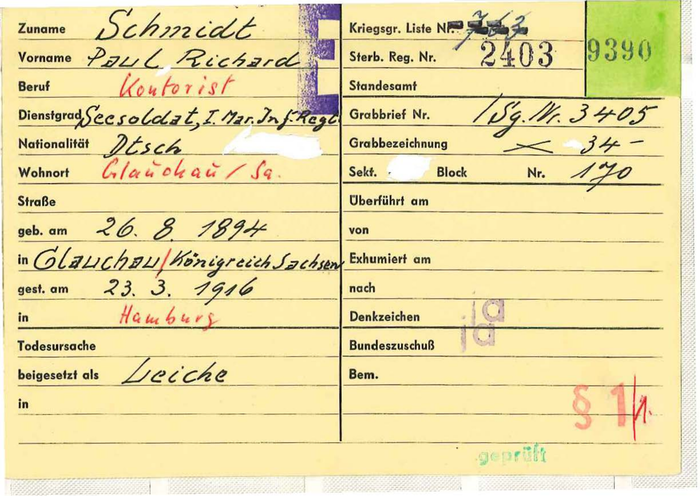 Zuname Schmidt
Vorname Paul Richard
Beruf Kontorist
Dienstgrad Seesoldat, I. Mar. Inf. Regt.
Nationalität Dtsch
Wohnort Glauchau / Sa.
Straße
geb. am 26. 8. 1894
in Glauchau / Königreich Sachsen
gest. am 23. 3. 1916
in Hamburg
Todesursache
beigesetzt als Leiche
in
Kriegsgr. Liste Nr.
Sterb. Reg. Nr. 2403
9390
Standesamt
Grabbrief Nr. /Sg. Nr. 3405
Grabbezeichnung 34-
Sekt. Block Nr. 170
Überführt am
von
Exhumiert am
nach
Denkzeichen ja
Bundeszuschuß ja
Bem.
§ 1/1.
geprüft